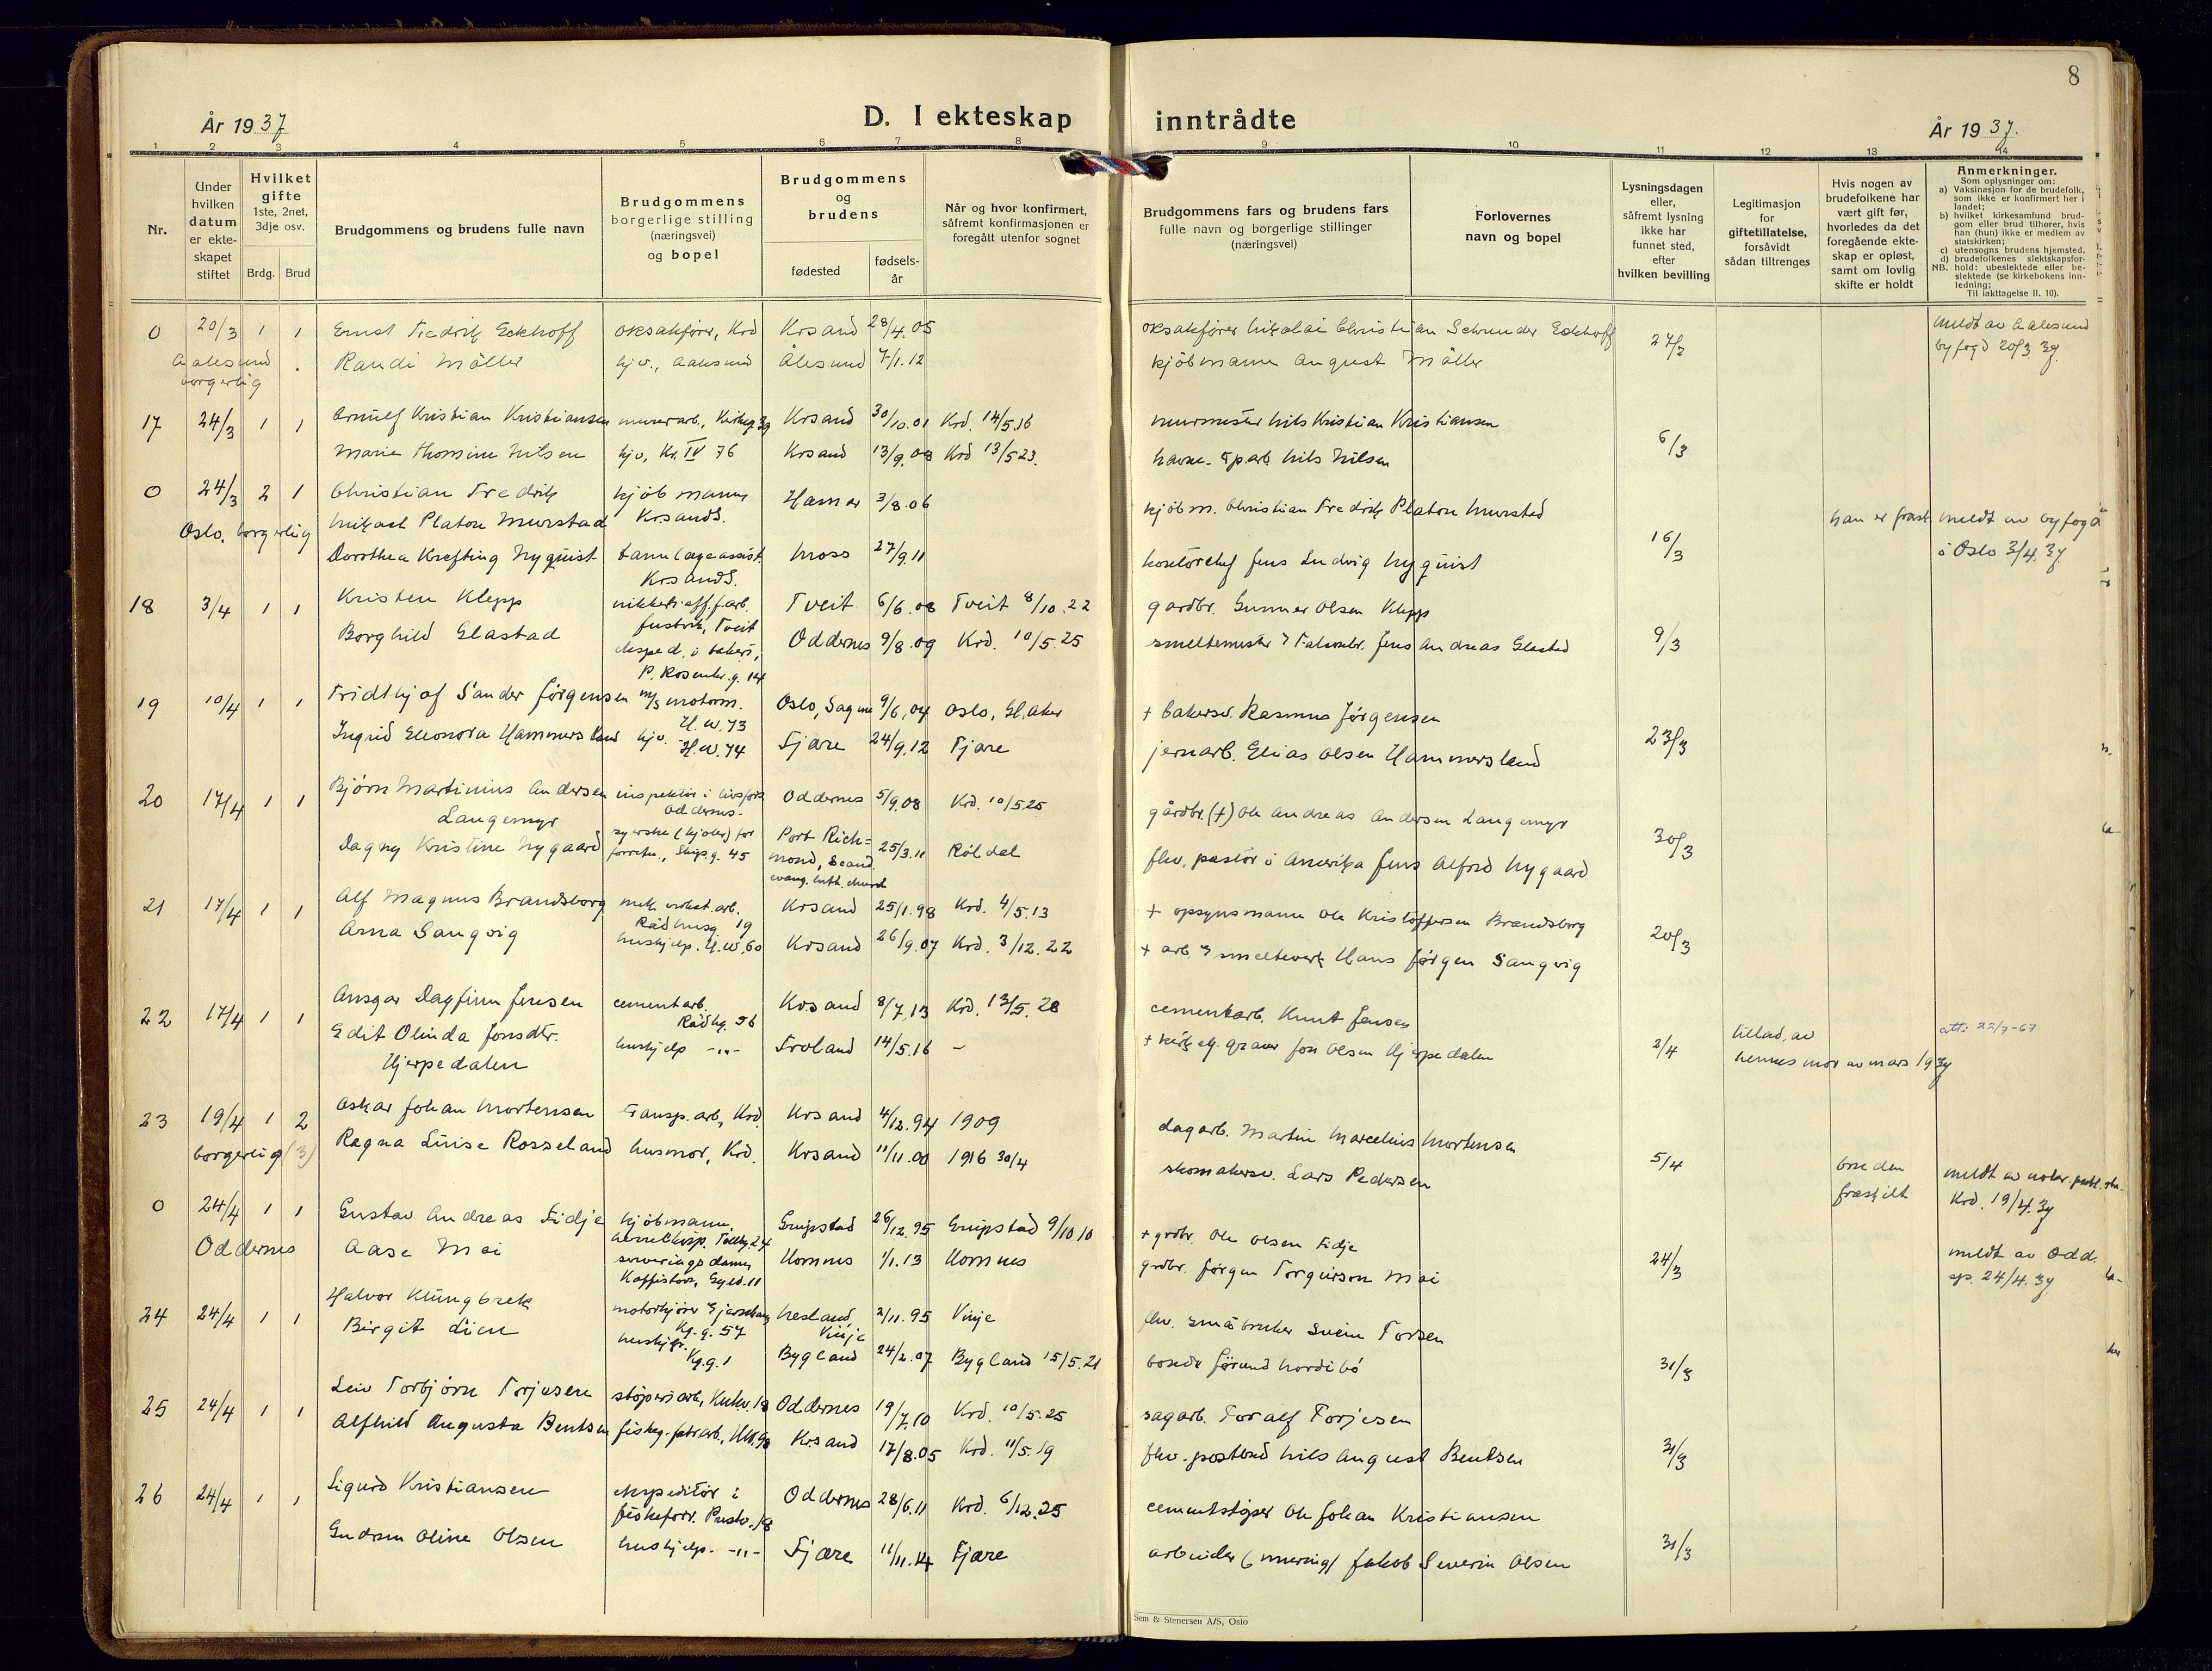 8
År 1937
D. I ekteskap
inntrådte
År 1937.
1 2 3 4 5 6 7 8 9 10 11 12 13 14
Nr.
Under
hvilken
datum
er ekte-
skapet
stiftet
Hvilket
gifte
1ste, 2net,
3dje osv.
Brdg. Brud
Brudgommens og brudens fulle navn
Brudgommens
borgerlige stilling
(næringsvei)
og bopel
Brudgommens
og
brudens
fødested
fødsels-
år
Når og hvor konfirmert,
såfremt konfirmasjonen er
foregått utenfor sognet
Brudgommens fars og brudens fars
fulle navn og borgerlige stillinger
(næringsvei)
Forlovernes
navn og bopel
Lysningsdagen
eller,
såfremt lysning
ikke har
funnet sted,
efter
hvilken bevilling
Legitimasjon
for
giftetillatelse,
forsåvidt
sådan tiltrenges
Hvis nogen av
brudefolkene har
vært gift før,
hvorledes da det
foregående ekte-
skap er opløst,
samt om lovlig
skifte er holdt
Anmerkninger.
Som oplysninger om:
a) Vaksinasjon for de brudefolk,
som ikke er konfirmert her i
landet;
b) hvilket kirkesamfund brud-
gom eller brud tilhører, hvis
han (hun) ikke er medlem av
statskirken;
c) utensogns brudens hjemsted.
d) brudefolkenes slektskapsfor-
NB. hold: ubeslektede eller be-
slektede (se kirkebokens inn-
ledning;
Til iakttagelse II. 10).
0 20/3 1 1 Ernst Fredrik Eckhoff oksakfører, Krd Krsand 28/4.05 oksakfører Nikolai Christian Schrender Eckhoff 27/2 meldt av Aalesund
Aalesund Randi Møller hjv., Aalesund Ålesund 7/1.12 kjøbmann August Møller byfogd 20/3.37
borgerlig
17 24/3 1 1 Arnulf Kristian Kristiansen murerarb., Kirkeg. 39 Krsand 30/10.01 Krd. 14/5.16 murmester Nils Kristian Kristiansen
Marie Thomine Nilsen hjv, Kr. IV 76 Krsand 13/9.08 Krd 13/5 23. havne- Nils Nilsen 6/3
0 24/3 2 1 Christian Fredrik kjøbmann Hamar 3/8.06 kjøbm. Christian Fredrik Platou Murstad
Oslo, borgerlig Mikael Platou Murstad KrsandS. han er frask. meldt av byfogd
Dorothea Krefting Nyquist tannlegeassist. Moss 27/9.11 kontorchef Jens Ludvig Nyquist 16/3 i Oslo 3/4.37
KrsandS.
18 3/4 1 1 Kristen Klepp nikkelraff.arb. Tveit 6/6.08 Tveit 8/10.22 gardbr. Gunner Olsen Klepp
Tveit
Borghild Glastad eksped. i bakeri, Oddernes 9/8.09 Krd. 10/5.25 smeltemester Jens Andreas Glastad 9/3
P. Rosenkr.g. 14
19 10/4 1 1 Fridthjof Sander Jørgensen m/s motorm. Oslo, Sagene 9/6.04 Oslo, Gl. Aker + bakersv. Rasmus Jørgensen
H.W.73
Ingrid Eleonora Hammersland hjv. H.W.74 Fjære 24/9.12 Fjære jernarb. Elias Olsen Hammersland 23/3
20 17/4 1 1 Bjørn Martinius Andersen inspektør i livsfors. Oddernes 5/9.08 Krd. 10/5.25 gårdbr. (+) Ole Andreas Andersen Langemyr
Langemyr Oddernes-
Dagny Kristine Nygaard syerske (kjoler) for Port Rich= 25/3.11 Røldal fhv. pastor i Amerika Jens Alfred Nygaard 30/3
forretn., Skipg. 45 mond, Scand.
evang. luth. church
21 17/4 1 1 Alf Magnus Brandsborg mek. verkst. arb. Krsand 25/1.98 Krd. 4/5.13 + opsynsmann Ole Kristoffersen Brandsborg
Rådhusg. 19
Arna Sangvig hushjelp. H.W.60 Krsand 26/9.07 Krd. 3/12.22 + arb. smelteverk Hans Jørgen Sangvig 20/3
22 17/4 1 1 Ansgar Dagfinn Jensen cementarb. Krsand 8/7.13 Krd. 13/5.28 cementarb. Knut Jensen
Rådhg. 56
Edit Olinda Jonsdtr. hushjelp -"- Froland 14/5.16 - + kirk. og graver Jon Olsen Hjerpedalen 2/4 tillad. av att: 22/7-67
Hjerpedalen hennes mor av mars 1937
23 19/4 1 2 Oskar Johan Mortensen transp. arb, Krd. Krsand 4/12.94 1909 dagarb. Martin Marcelius Mortensen
borgerlig (3) Ragna Luise Rosseland husmor, Krd. Krsand 11/11.00 1916 30/4 skomakersv. Lars Pedersen 5/4 bruden meldt av notar. publ.
fraskilt Krd. 19/4.37
0 24/4 1 1 Gustav Andreas Fidje kjøbmann, Greipstad 26/12.95 Greipstad 9/10 10 + grdbr. Ole Olsen Fidje
Tollbg. 24
Oddernes Aase Moi serveringsdame, Hornnes 1/1.13 Hornnes grdbr. Jørgen Torgierson Moi 24/3 meldt av Odd.
Kaffistova, Gyld. 11 sp. 24/4.37
24 24/4 1 1 Halvor Klungbrek motorkjører Nesland, 2/11.95 Vinje fhv. småbruker Svein Torsen
Kg. g. 57 Vinje
Birgit Lien hushjelp. Bygland 24/2.07 Bygland 15/5.21 bonde Jørund Nordibö 31/3
Kg.g. 1
25 24/4 1 1 Leiv Torbjørn Torjesen støperiarb., Oddernes 19/7.10 Krd. 10/5.25 sagarb. Toralf Torjesen
Alfhild Augusta Bentsen Krsand 17/8.05 Krd. 11/5.19 fhv. postbud Nils August Bentsen 31/3
26 24/4 1 1 Sigurd Kristiansen ekspeditør i Oddernes 28/6.11 Krd. 6/12.25 cementstøper Ole Johan Kristiansen
fiskeforr. Prestv. 18
Gudrun Oline Olsen hushjelp. -"- Fjære 11/11.14 Fjære arbeider (murning) Jakob Severin Olsen 31/3
Sem & Stenersen A/S, Oslo